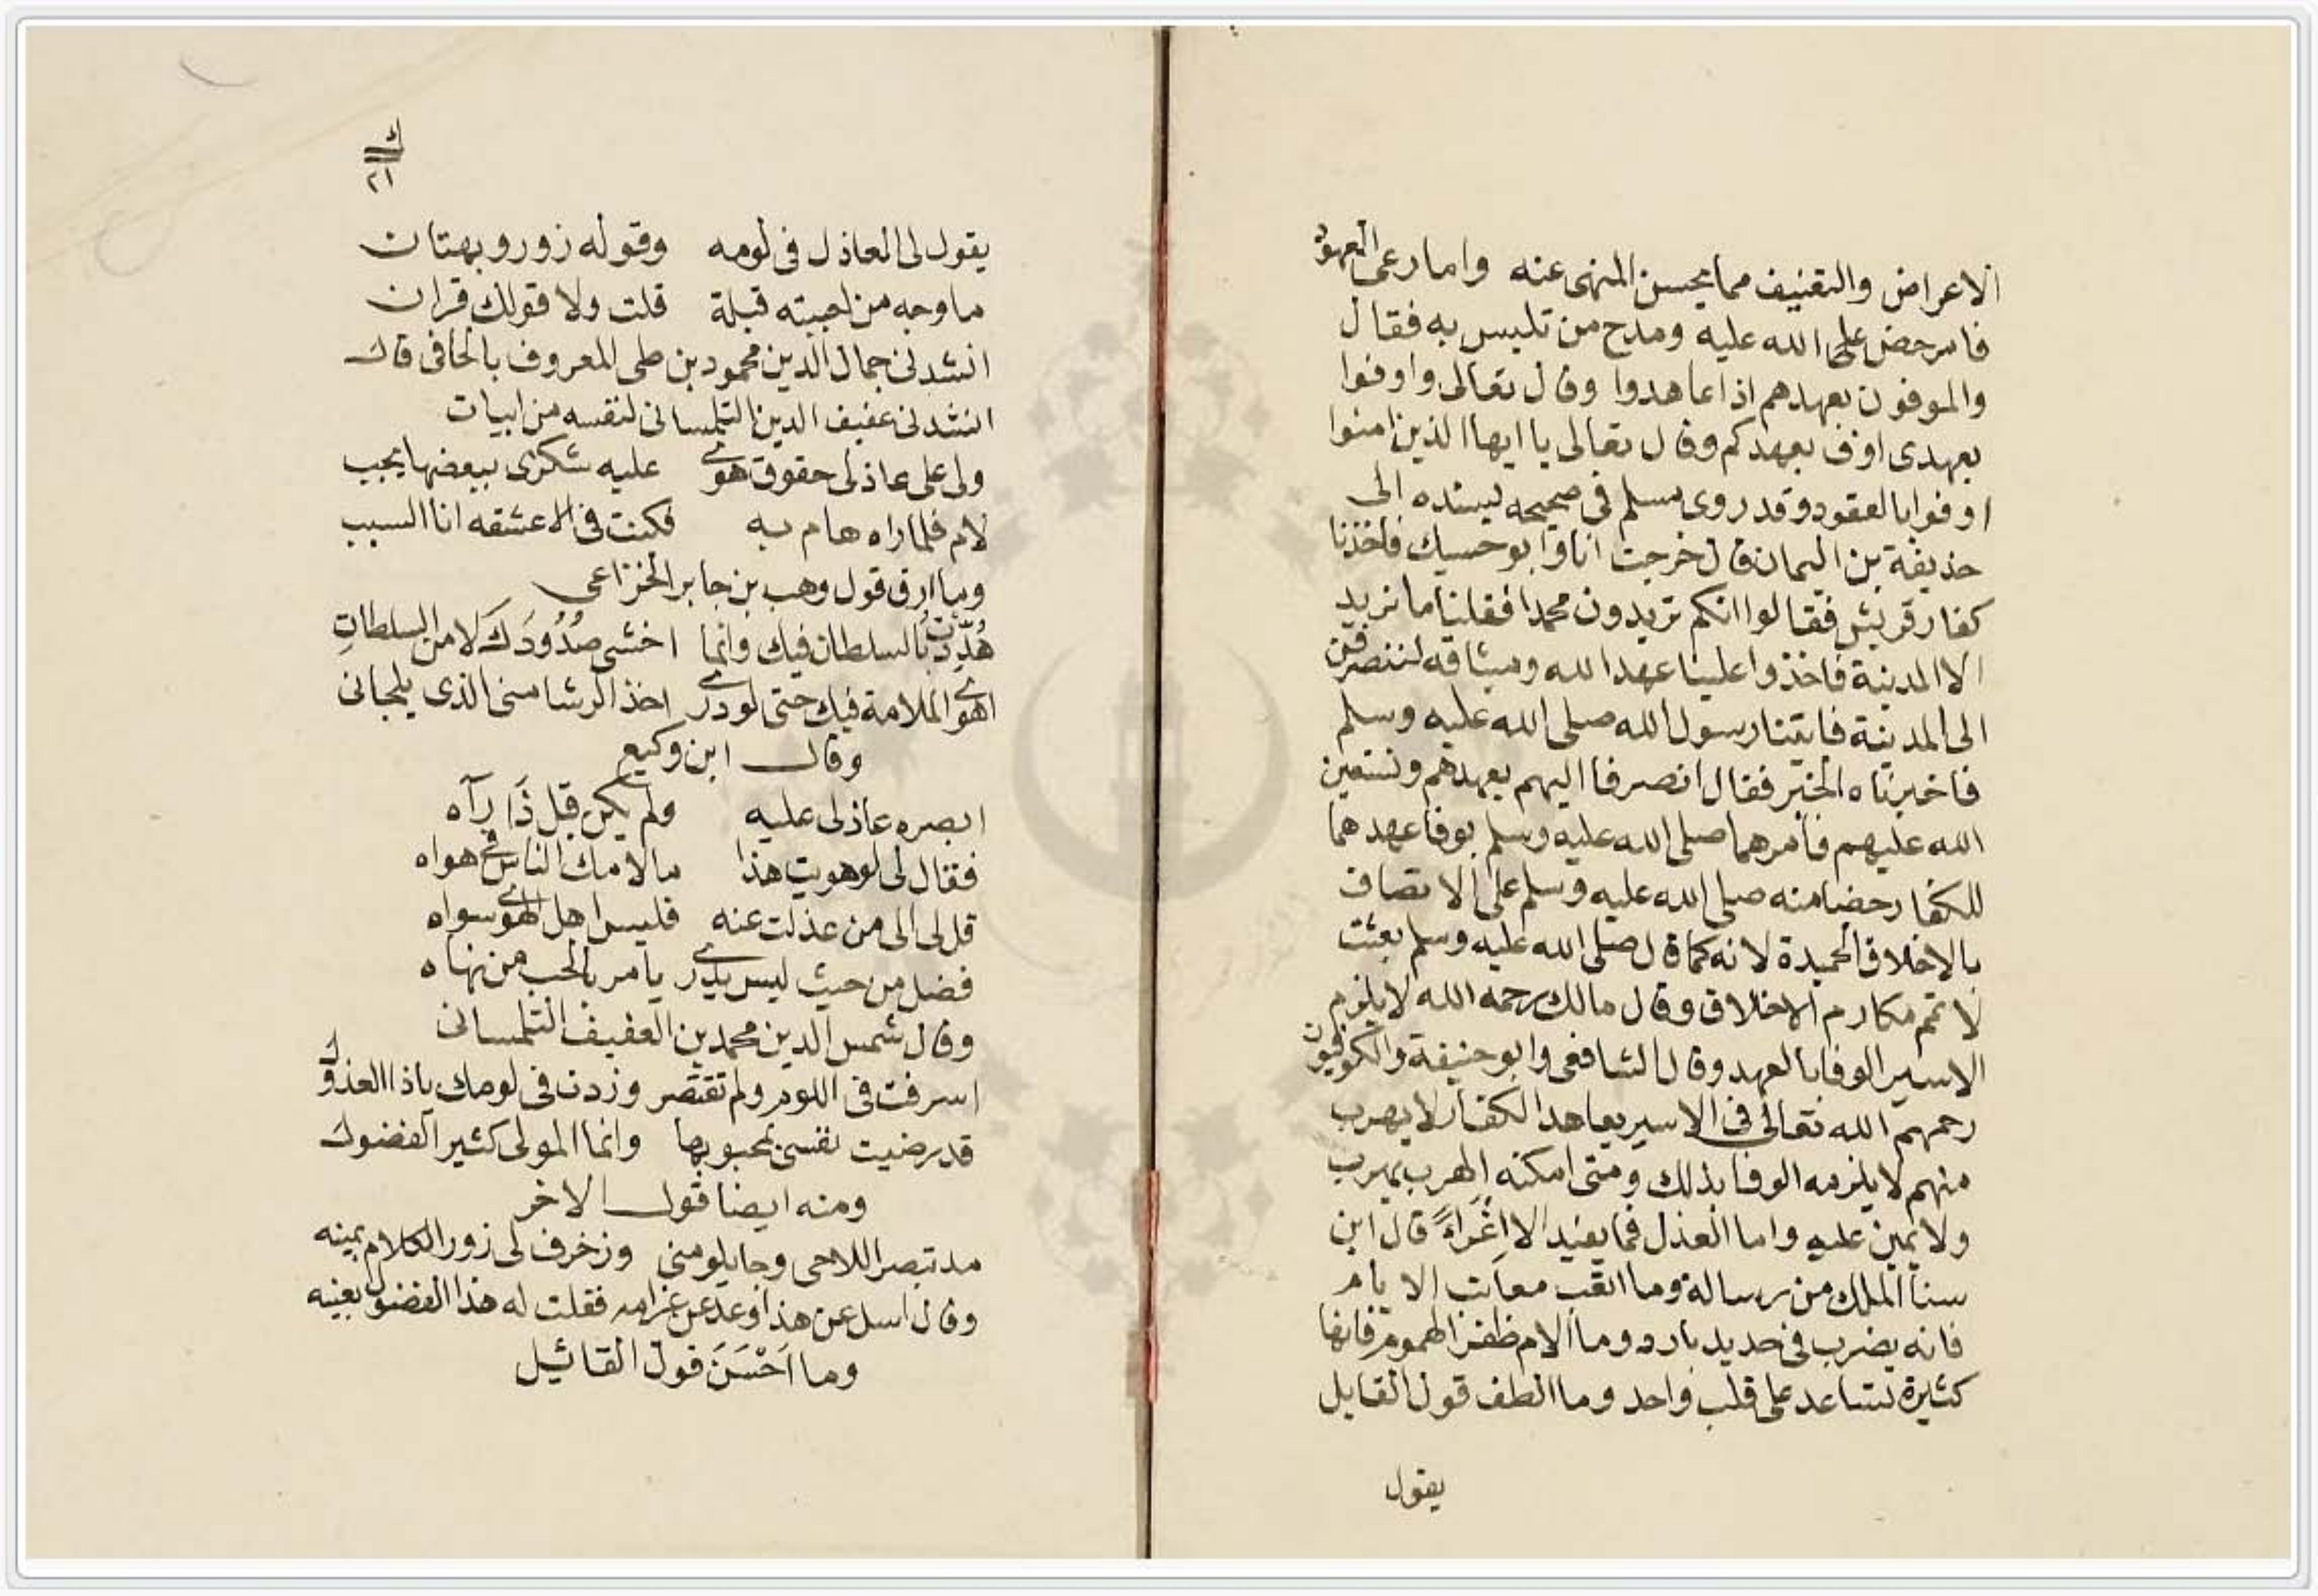 الاعراض والتفنيف مما يحسن المنهى عنه واما رعى العهود
فامر حض على الله عليه ومدح من تلبس به فقال
والموفون بعهدهم اذا عاهدوا وقال تعالى واوفوا
بعهدى اوف بعهدكم وقال تعالى يا ايها الذين امنوا
اوفوا بالعقود وقد روى مسلم فى صحيحه يسنده الى
حذيفة بن اليمان قال خرجت انا وابو حسيك فاخذنا
كفار قريش فقالوا انكم تريدون محمدا فقلنا ما نريد
الا المدينة فاخذوا علينا عهد الله وميثاقه لننصرفن
الى المدينة فاتينا رسول الله صلى الله عليه وسلم
فاخبرناه الخبر فقال انصرفا اليهم بعهدهم ونستعين
الله عليهم فامرهما صلى الله عليه وسلم بوفا عهدهما
للكفار حضا منه صلى الله عليه وسلم على الاتصاف
بالاخلاق الحميدة لانه كما قال صلى الله عليه وسلم بعثت
لاتمم مكارم الاخلاق وقال مالك رحمه الله لا يلزم
الاسير الوفا بالعهد وقال الشافعى وابو حنيفة والكوفيون
رحمهم الله تعالى فى الاسير يعاهد الكفار لا يهرب
منهم لا يلزمه الوفا بذلك ومتى امكنه الهرب يهرب
ولا يمين عليه واما العذل فما يفيد الا اغراءً قال ابن
سنا الملك من رسالة وما اتعب معاتب الايام
فانه يضرب فى حديد بارد وما الام ظفر الهموم فانها
كثيرة تساعد على قلب واحد وما الطف قول القايل
يقول
ك
٢١
يقول لى العاذل فى لومه وقوله زور وبهتان
ما وجه من احببته قبلة قلت ولا قولك قران
انشدنى جمال الدين محمود بن طى المعروف بالحافى قال
انشدنى عفيف الدين التلمسانى لنفسه من ابيات
ولى على عاذلى حقوق هوى عليه شكرى ببعضها يجب
لام فلما راه هام به فكنت فى عشقه انا السبب
وما ارق قول وهب بن جابر الخزاعى
هُدِّدتُ بالسلطان فيك وانما اخشى صُدُودَكَ لا من السلطانِ
اهوى الملامة فيك حتى لو درى اخذ الرشا منى الذى يلحانى
وقال ابن وكيع
ابصره عاذلى عليه ولم يكن قبل ذَا رآه
فقال لى لو هويت هذا ما لامك الناس فى هواه
قل لى الى من عذلت عنه فليس اهل الهوى سواه
فضل من حيث ليس يدرى يامر بالحب من نهاه
وقال شمس الدين محمد بن العفيف التلمسانى
اسرفت فى اللوم ولم تقتصر وزدت فى لومك يا ذا العذول
قد رضيت نفسى بمحبوبها وانما المولى كثير الفضول
ومنه ايضا قول الاخر
مذ تبصر اللاحى وجا يلومنى وزخرف لى زور الكلام بمينه
وقال اسل عن هذا وعد عن غرامه فقلت له هذا الفضول بعينه
وما اَحْسَنَ قول القائيل